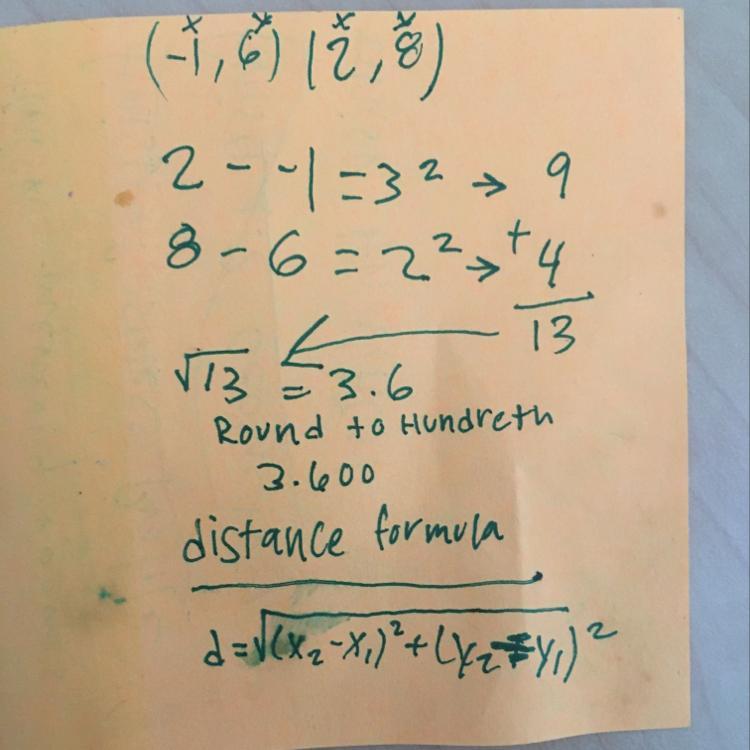 x y x x
(-1, 6) (2, 8)
2 - -1 = 3² → 9
8 - 6 = 2² → + 4
13
√13 = 3.6
Round to Hundreth
3.600
distance formula
d=√(x₂-x₁)²+(y₂-y₁)²